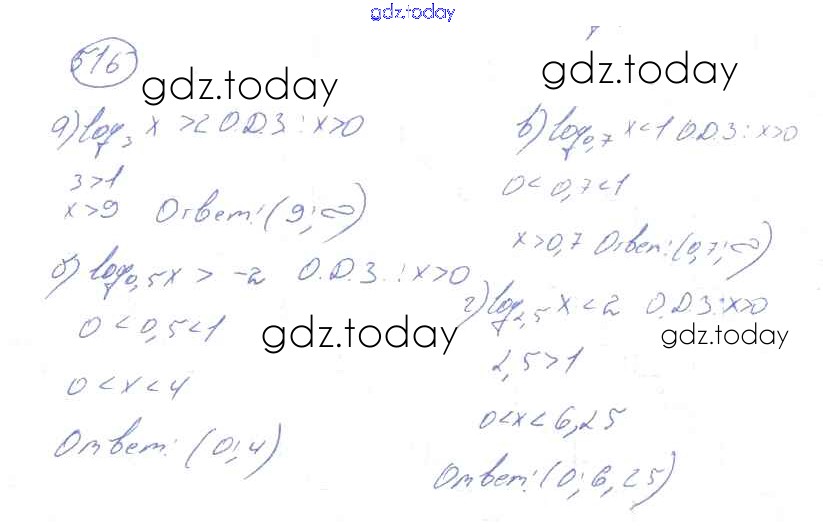 gdz.today
516
gdz.today
gdz.today
а) log₃ x > 2 О.Д.З: x>0
3>1
x>9 Ответ: (9; ∞)
б) log₀,₅ x > -2 О.Д.З.: x>0
0 < 0,5 < 1
gdz.today
0 < x < 4
Ответ: (0; 4)
в) log₀,₇ x < 1 О.Д.З: x>0
0 < 0,7 < 1
x > 0,7 Ответ: (0,7; ∞)
г) log₂,₅ x < 2 О.Д.З: x>0
gdz.today
2,5 > 1
0<x< 6,25
Ответ: (0; 6,25)